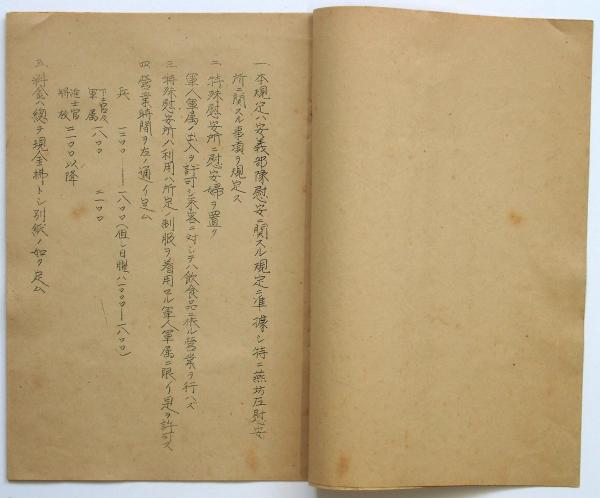 一、本規定ハ安義部隊慰安ニ関スル規定ニ準據シ特ニ燕坊庄慰安
所ニ関スル事項ヲ規定ス
二、特殊慰安所ニ慰安婦ヲ置ク
軍人軍属ノ出入ヲ許可シ来客ニ対シテハ飲食品ニ依ル営業ヲ行ハズ
三、特殊慰安所ハ利用ハ所定ノ制服ヲ着用スル軍人軍属ニ限ノイ是ヲ許可ス
四、営業時間ヲ左ノ通イ定ム
兵 一二〇〇――一八〇〇(但シ日曜ハ一〇〇〇――一八〇〇)
下士官及
軍属 一八〇〇 二一〇〇
准士官
将校 二一〇〇以降
五、料金ハ總テ現金拂トシ別紙ノ如ク定ム